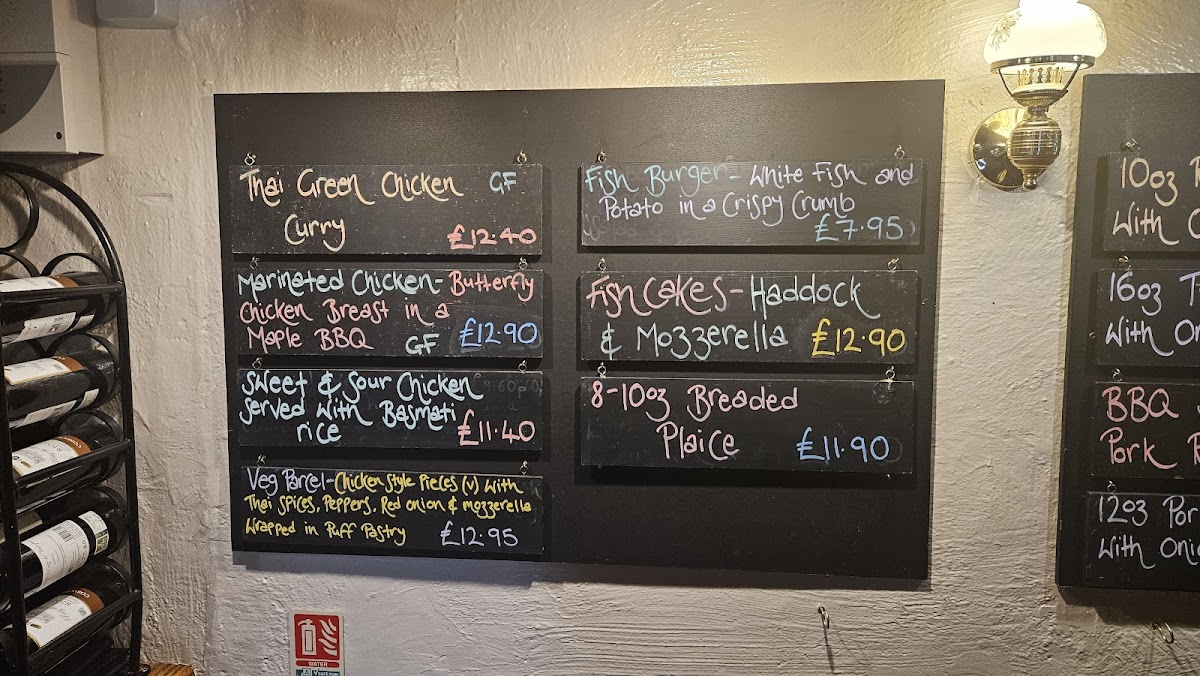 Thai Green Chicken GF
Curry £12.40
Marinated Chicken- Butterfly
Chicken Breast in a
Maple BBQ GF £12.90
Sweet & Sour Chicken
served with Basmati
rice £11.40
Veg Parcel-Chicken Style Pieces (v) with
Thai Spices, Peppers, Red onion & mozzerella
Wrapped in Puff Pastry £12.95
Fish Burger- White Fish and
Potato in a Crispy Crumb
£7.95
Fish Cakes- Haddock
& Mozzerella £12.90
8-10oz Breaded
Plaice £11.90
10oz
With
16oz T-
With On
BBQ
Pork R
12oz Por
With Onio
WATER